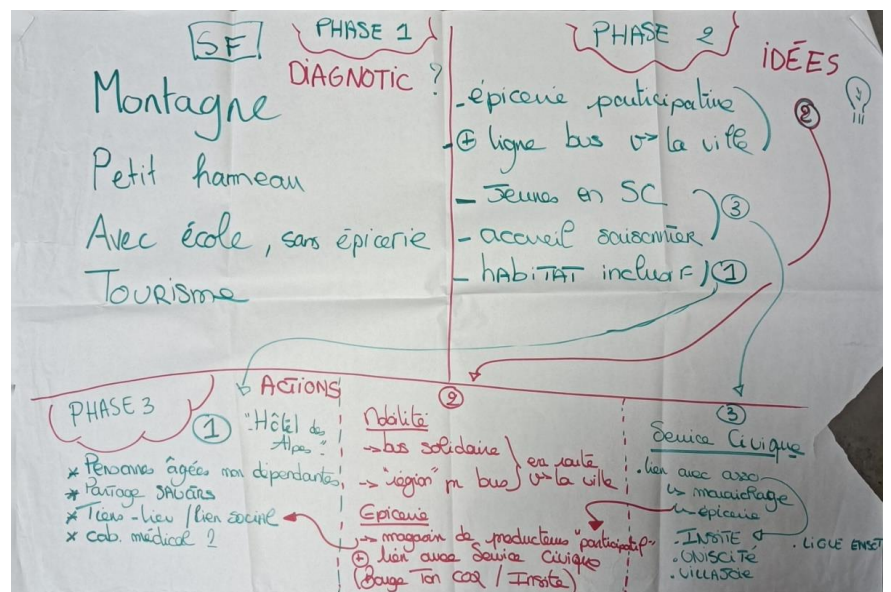 SF
PHASE 1
DIAGNOTIC ?
Montagne
Petit hameau
Avec école, sans épicerie
Tourisme
PHASE 2
IDÉES
- épicerie participative
+ ligne bus v> la ville
2
- Jeunes en SC
- accueil saisonnier
3
- habitat inclusif
1
PHASE 3
ACTIONS
1
"Hôtel des
Alpes"
* Personnes âgées non dépendantes
* Partage savoirs
* Tiers-lieu / lien social
* cab. médical ?
2
Mobilité
→ bus solidaire
→ "région" bus
en route
v> la ville
Epicerie
→ magasin de producteurs "participatif"
+ lien avec Service Civique
(Bouge Ton COQ / Insite)
3
Service Civique
. lien avec asso
↳ maraîchage
↳ épicerie
. INSITE
. UNISCITÉ
. VILLAJOIE
. LIGUE ENSET